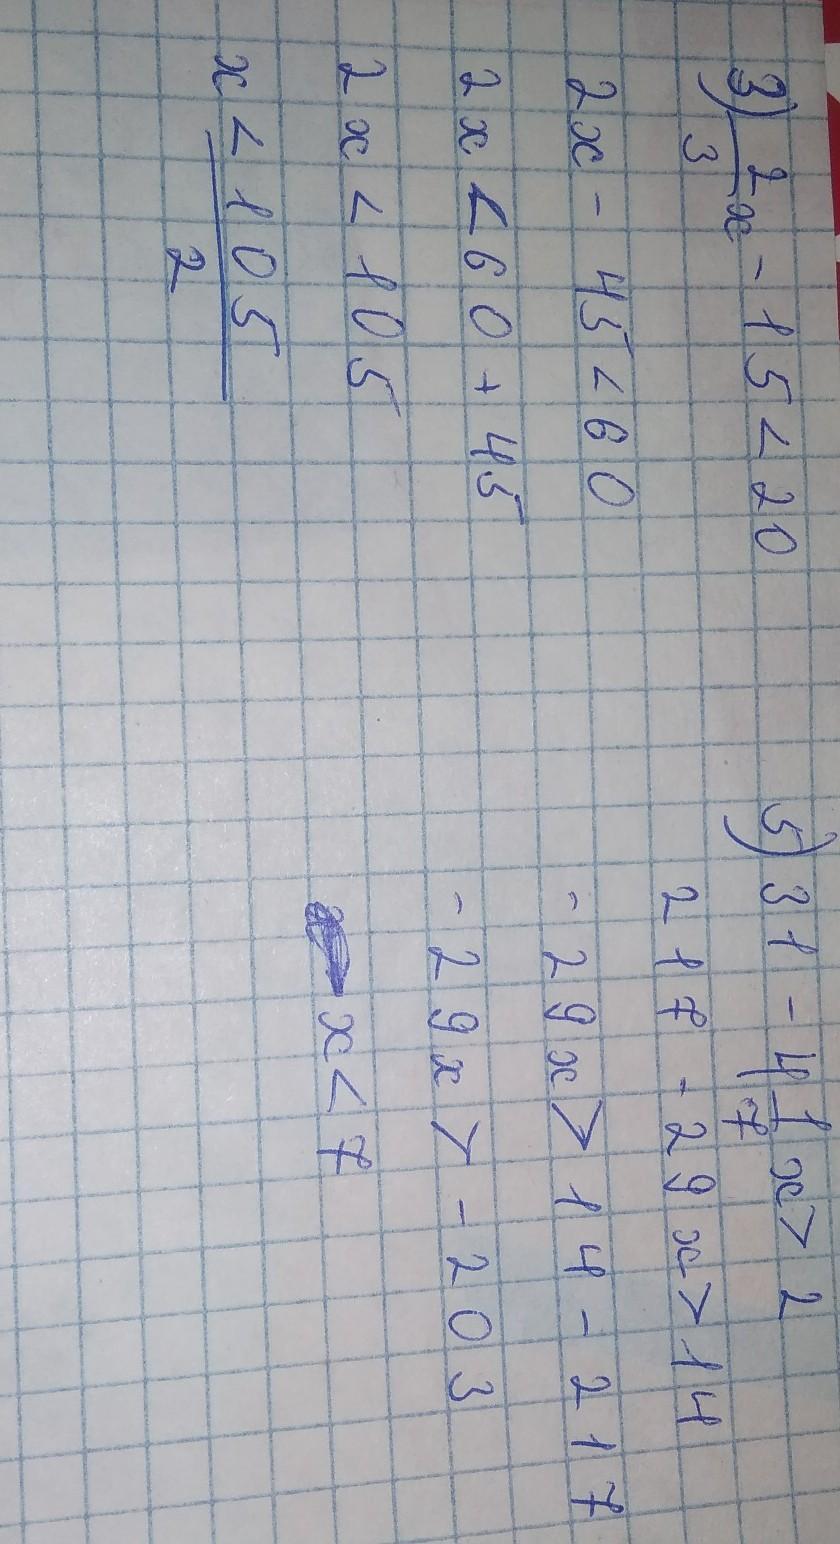 3) 2/3 x - 15 < 20
2x - 45 < 60
2x < 60 + 45
2x < 105
x < 105/2
5) 31 - 4 1/7 x > 2
217 - 29x > 14
- 29x > 14 - 217
- 29x > - 203
x < 7